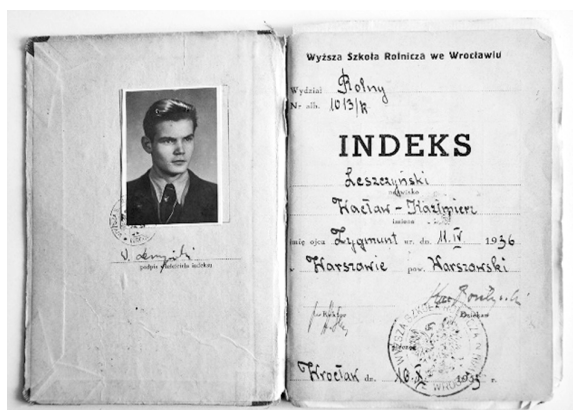 podpis właściciela indeksu
Wyższa Szkoła Rolnicza we Wrocławiu
Wydział Rolny
Nr alb. 1013/R
INDEKS
Leszczyński
nazwisko
Wacław-Kazimierz
imiona
imię ojca Zygmunt ur. dn. 11.IV 1936
w Warszawie pow. Warszawski
Rektor Dziekan
WYŻSZA SZKOŁA ROLNICZA WROCŁAW
Wrocław dn. 10.X 1955 r.